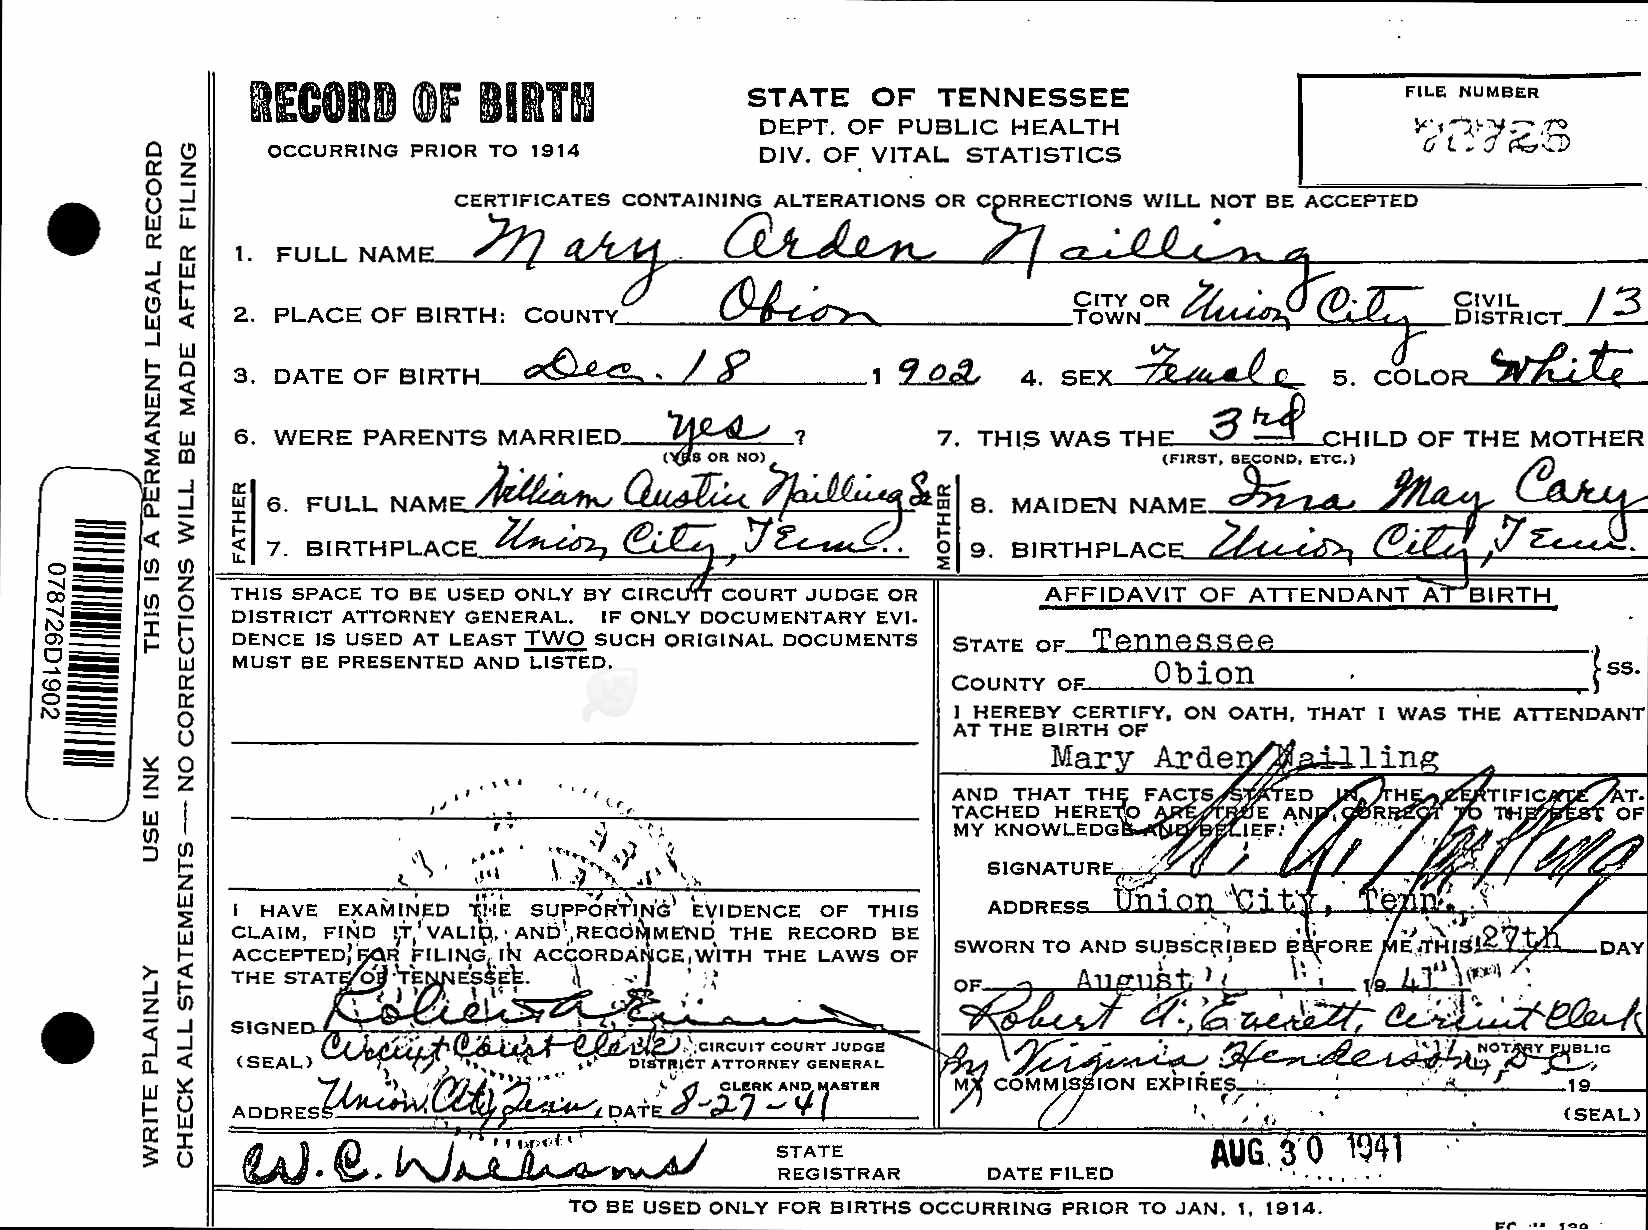 RECORD OF BIRTH
OCCURRING PRIOR TO 1914
STATE OF TENNESSEE
DEPT. OF PUBLIC HEALTH
DIV. OF VITAL STATISTICS
FILE NUMBER
CERTIFICATES CONTAINING ALTERATIONS OR CORRECTIONS WILL NOT BE ACCEPTED
1. FULL NAME Mary Arden Nailling
2. PLACE OF BIRTH: COUNTY Obion CITY OR TOWN Union City CIVIL DISTRICT 13
3. DATE OF BIRTH Dec. 18 1902 4. SEX Female 5. COLOR White
6. WERE PARENTS MARRIED yes ? 7. THIS WAS THE 3rd CHILD OF THE MOTHER
(YES OR NO) (FIRST, SECOND, ETC.)
FATHER
6. FULL NAME William Austin Nailling Sr
7. BIRTHPLACE Union City, Tenn.
MOTHER
8. MAIDEN NAME Inra May Cary
9. BIRTHPLACE Union City, Tenn.
THIS SPACE TO BE USED ONLY BY CIRCUIT COURT JUDGE OR
DISTRICT ATTORNEY GENERAL. IF ONLY DOCUMENTARY EVI-
DENCE IS USED AT LEAST TWO SUCH ORIGINAL DOCUMENTS
MUST BE PRESENTED AND LISTED.
I HAVE EXAMINED THE SUPPORTING EVIDENCE OF THIS
CLAIM, FIND IT VALID, AND RECOMMEND THE RECORD BE
ACCEPTED FOR FILING IN ACCORDANCE WITH THE LAWS OF
THE STATE OF TENNESSEE.
SIGNED
(SEAL) Circuit Court Clerk CIRCUIT COURT JUDGE
DISTRICT ATTORNEY GENERAL
CLERK AND MASTER
ADDRESS Union City Tenn, DATE 8-27-41
AFFIDAVIT OF ATTENDANT AT BIRTH
STATE OF Tennessee
COUNTY OF Obion ss.
I HEREBY CERTIFY, ON OATH, THAT I WAS THE ATTENDANT
AT THE BIRTH OF
Mary Arden Nailling
AND THAT THE FACTS STATED IN THE CERTIFICATE AT-
TACHED HERETO ARE TRUE AND CORRECT TO THE BEST OF
MY KNOWLEDGE AND BELIEF.
SIGNATURE
ADDRESS Union City, Tenn.
SWORN TO AND SUBSCRIBED BEFORE ME THIS 27th DAY
OF August 19 41
Robert A. Everett, Circuit Clerk
By Virginia Henderson, D.C. NOTARY PUBLIC
MY COMMISSION EXPIRES 19
(SEAL)
W. C. Williams STATE REGISTRAR DATE FILED AUG. 30 1941
TO BE USED ONLY FOR BIRTHS OCCURRING PRIOR TO JAN. 1, 1914.
WRITE PLAINLY USE INK THIS IS A PERMANENT LEGAL RECORD
CHECK ALL STATEMENTS — NO CORRECTIONS WILL BE MADE AFTER FILING
078726D1902